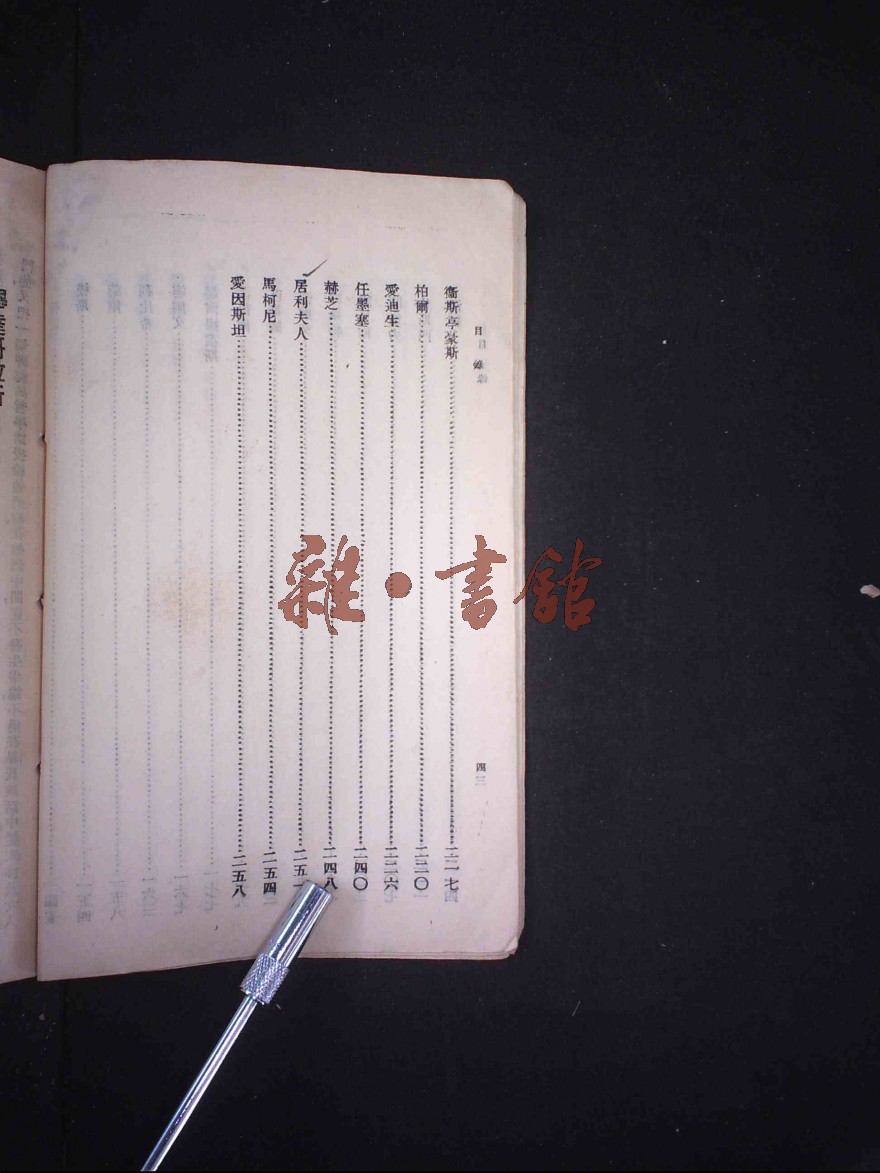 目錄
四
衞斯亭豪斯……二二七
柏爾……二三〇
愛迪生……二三六
任墨塞……二四〇
赫芝……二四八
居利夫人……二五
馬柯尼……二五四
愛因斯坦……二五八
雜·書館